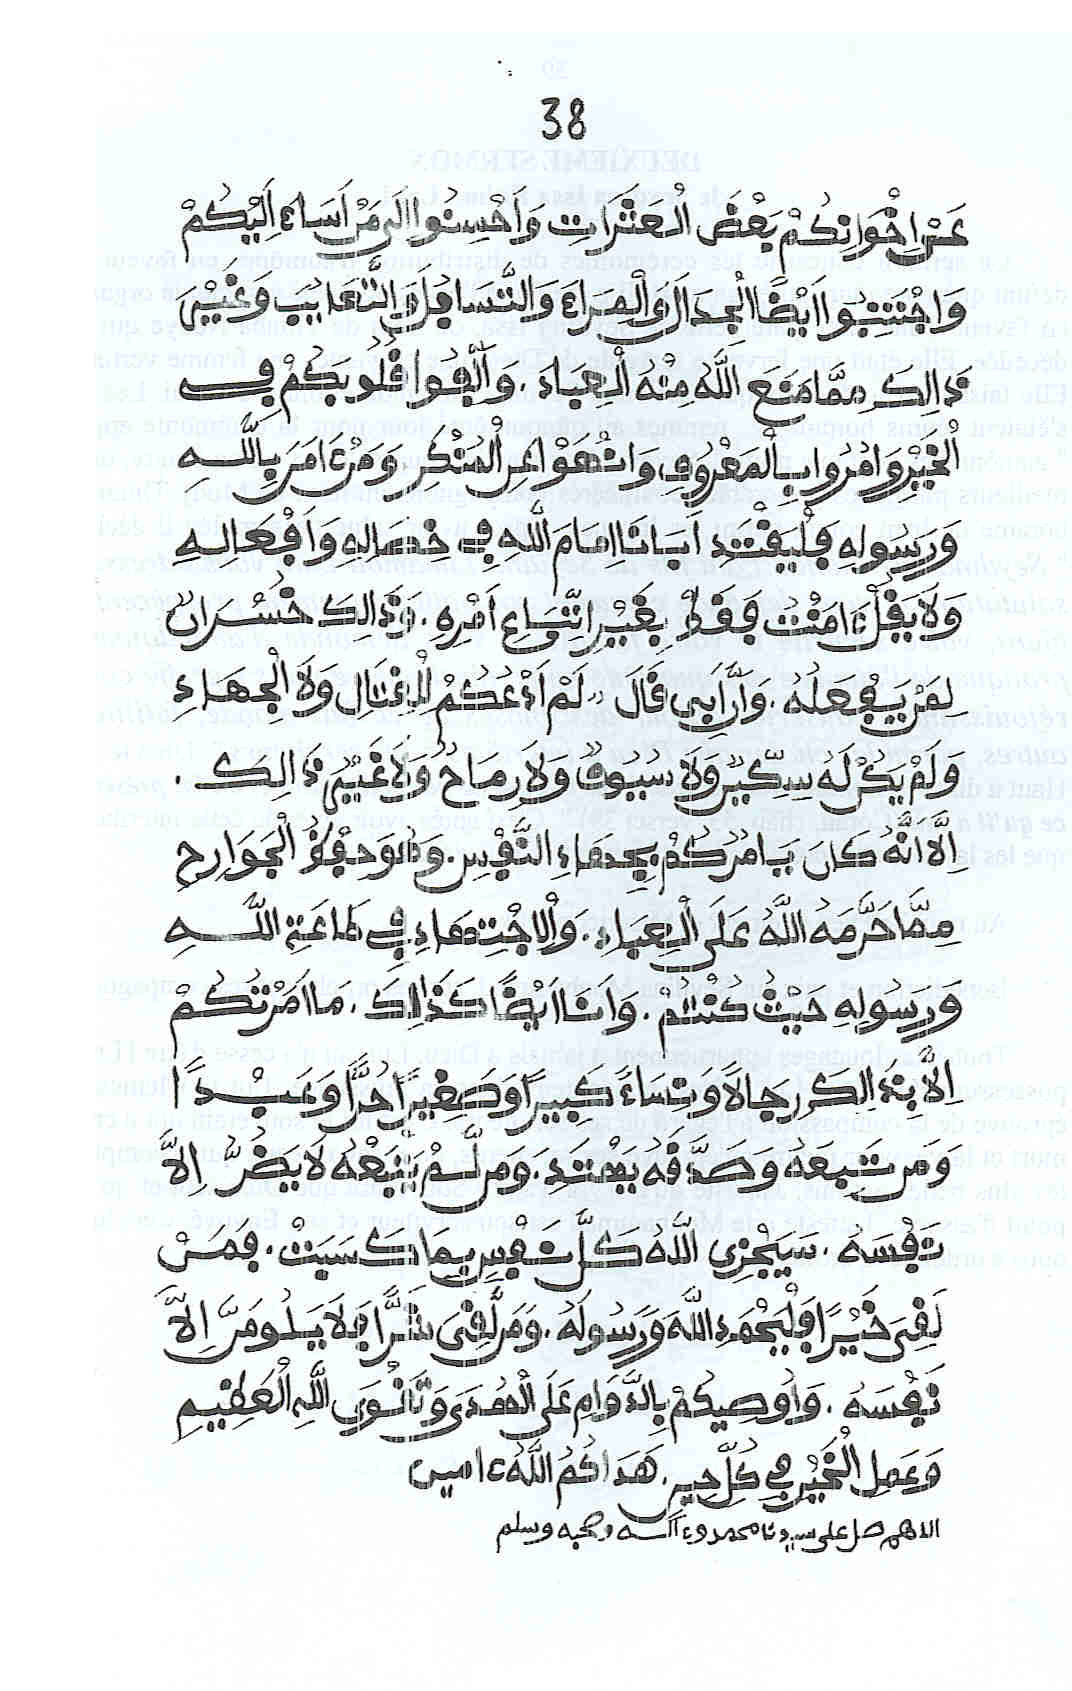 38
عَنِ اخْوَانِكُمْ بَعْضَ الْعَثَرَاتِ وَأَحْسِنُوا إِلَى مَنْ أَسَاءَ إِلَيْكُمْ
وَاجْتَنِبُوا أَيْضًا الْجِدَالَ وَالْمِرَاءَ وَالتَّسَافُلَ وَالتَّعَايُبَ وَغَيْرَ
ذَالِكَ مِمَّا مَنَعَ اللَّهُ مِنْهُ الْعِبَادَ . وَأَلِّفُوا قُلُوبَكُمْ فِي
الْخَيْرِ وَامُرُوا بِالْمَعْرُوفِ وَانْهَوْا عَنِ الْمُنْكَرِ وَمَنْ ءَامَنَ بِاللَّهِ
وَرَسُولِهِ فَلْيَقْتَدِ أَبَانَا امَامَ اللَّهِ فِي خِصَالِهِ وَأَفْعَالِهِ
وَلَا يَقُلْ ءَامَنْتُ فَقَطْ بِغَيْرِ اتِّبَاعِ أَمْرِهِ . وَذَالِكَ خُسْرَانٌ
لِمَنْ يَفْعَلُهُ . وَأَنَّ أَبِي قَالَ " لَمْ أَدْعُكُمْ لِلْقِتَالِ وَلَا الْجِهَادِ
وَلَمْ يَكُنْ لَهُ سِكِّينٌ وَلَا سُيُوفٌ وَلَا رِمَاحٌ وَلَا غَيْرُ ذَالِكَ .
إِلَّا أَنَّهُ كَانَ يَامُرُكُمْ بِجِهَادِ النَّفْسِ . وَهُوَ حِفْظُ الْجَوَارِحِ
مِمَّا حَرَّمَهُ اللَّهُ عَلَى الْعِبَادِ . وَالِاجْتِهَادِ فِي طَاعَةِ اللَّهِ
وَرَسُولِهِ حَيْثُ كُنْتُمْ . وَأَنَا أَيْضًا كَذَالِكَ . مَا أَمَرْتُكُمْ
إِلَّا بِذَالِكَ رِجَالًا وَنِسَاءً كَبِيرًا وَصَغِيرًا حُرًّا وَعَبْدًا
وَمَنْ تَبِعَهُ وَصَدَّقَهُ يَهْتَدِ . وَمَنْ لَمْ يَتْبَعْهُ لَا يَضُرُّ إِلَّا
نَفْسَهُ . سَيَجْزِي اللَّهُ كُلَّ نَفْسٍ بِمَا كَسَبَتْ . فَمَنْ
لَقِيَ خَيْرًا فَلْيَحْمَدِ اللَّهَ وَرَسُولَهُ . وَمَنْ لَقِيَ شَرًّا فَلَا يَلُومَنَّ إِلَّا
نَفْسَهُ . وَأُوصِيكُمْ بِالدَّوَامِ عَلَى الْهُدَى وَتَقْوَى اللَّهِ الْعَظِيمِ
وَعَمَلِ الْخَيْرِ فِي كُلِّ حِينٍ . هَدَاكُمُ اللَّهُ ءَامِين
اللهم صل على سيدنا محمد وءاله وصحبه وسلم